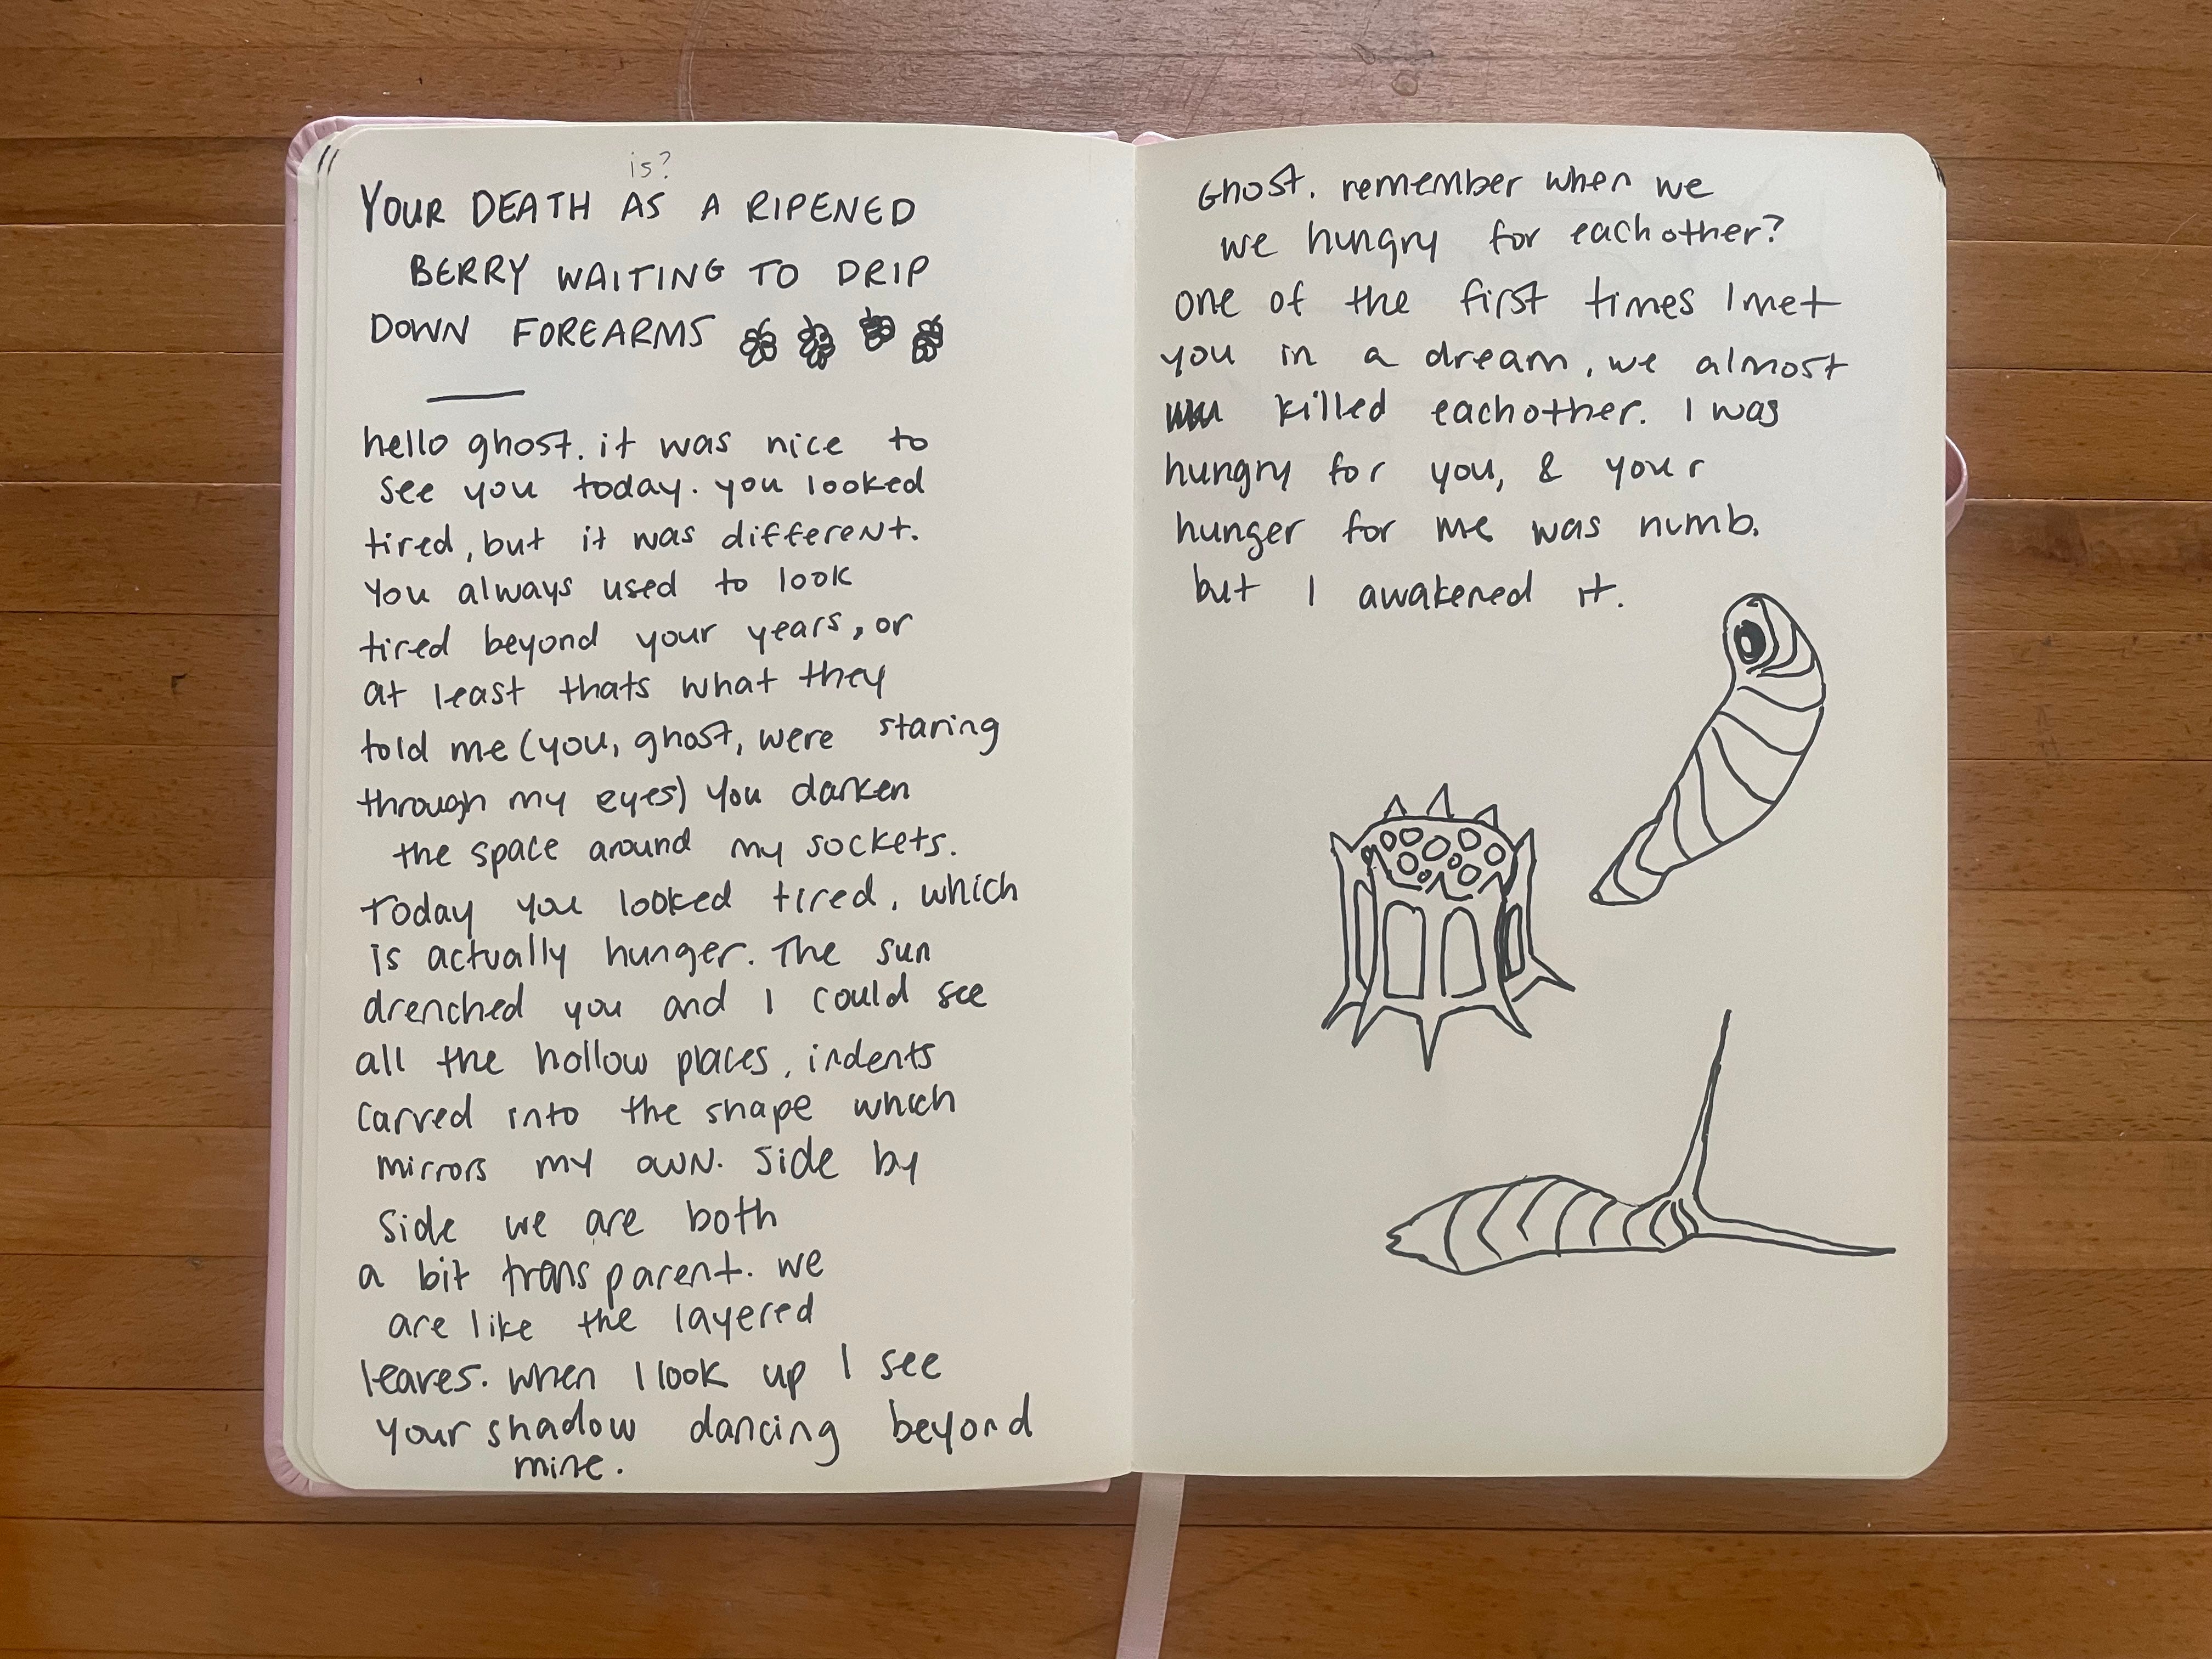 is?
YOUR DEATH AS A RIPENED
BERRY WAITING TO DRIP
DOWN FOREARMS
hello ghost. it was nice to
see you today. you looked
tired, but it was different.
You always used to look
tired beyond your years, or
at least thats what they
told me (you, ghost, were staring
through my eyes) You darken
the space around my sockets.
Today you looked tired, which
is actually hunger. The sun
drenched you and I could see
all the hollow places, indents
carved into the shape which
mirrors my own. side by
side we are both
a bit transparent. we
are like the layered
leaves. when I look up I see
your shadow dancing beyond
mine.
Ghost. remember when we
we hungry for eachother?
one of the first times I met
you in a dream, we almost
killed eachother. I was
hungry for you, & your
hunger for me was numb.
but I awakened it.